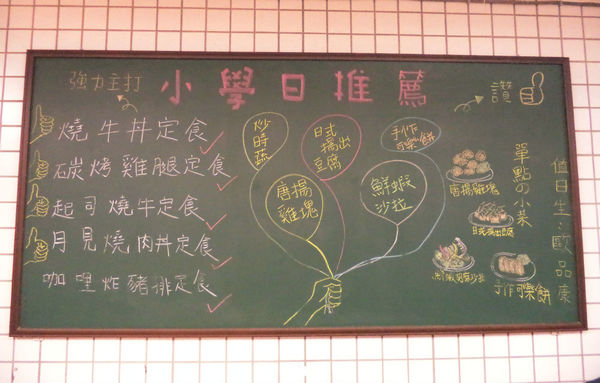 強力主打
小學日推薦
讚
燒牛丼定食
石炭烤雞腿定食
起司燒牛定食
月見燒肉丼定食
咖哩炸豬排定食
炒時蔬
日式揚出豆腐
手作可樂餅
唐揚雞塊
鮮蝦沙拉
單點の小菜
唐揚雞塊
日式揚出豆腐
手作可樂餅
值日生:歐品康